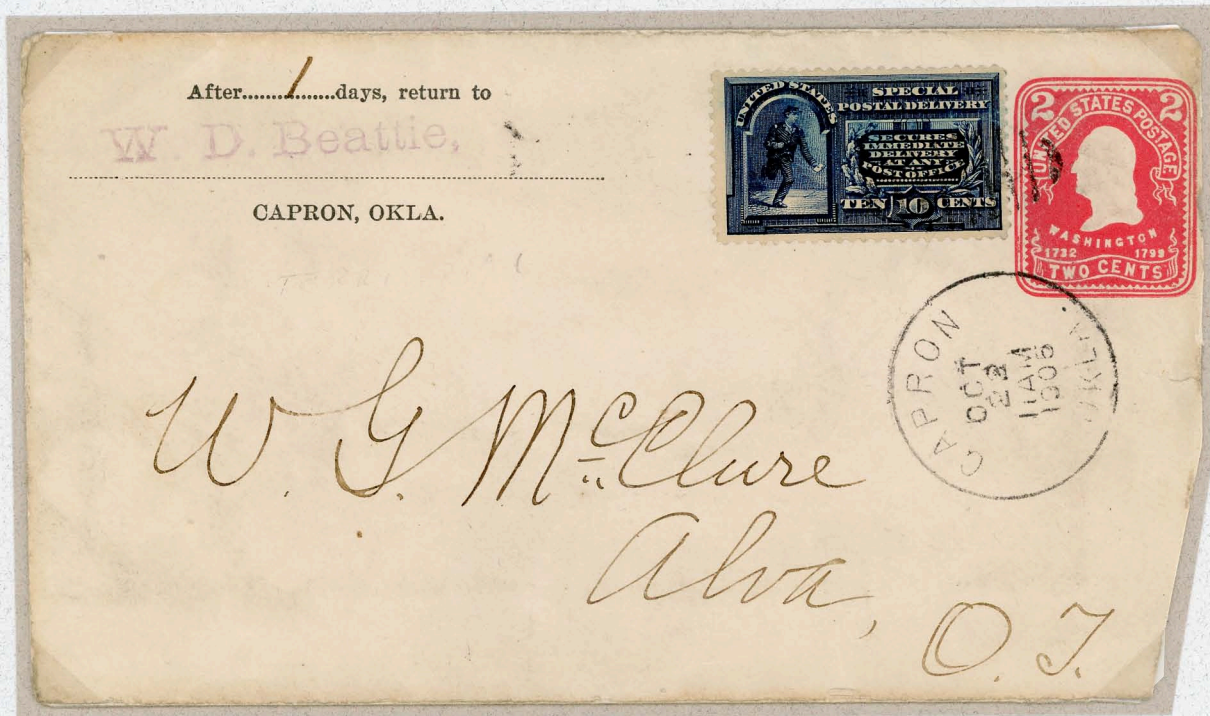 After.........1.........days, return to
W. D. Beattie,
CAPRON, OKLA.
UNITED STATES
SPECIAL
POSTAL DELIVERY
SECURES
IMMEDIATE
DELIVERY
AT ANY
POST OFFICE
TEN 10 CENTS
2 2
UNITED STATES POSTAGE
WASHINGTON
1732 1799
TWO CENTS
CAPRON
OCT
22
11AM
OKLA.
W. G. McClure
Alva,
O. T.